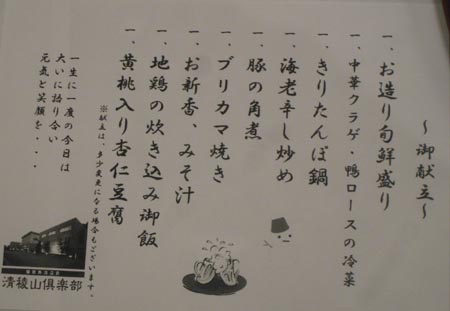 ～御献立～
一、お造り旬鮮盛り
一、中華クラゲ・鴨ロースの冷菜
一、きりたんぽ鍋
一、海老辛し炒め
一、豚の角煮
一、ブリカマ焼き
一、お新香、みそ汁
一、地鶏の炊き込み御飯
一、黄桃入り杏仁豆腐
※献立は、多少変更になる場合もございます。
一生に一度の今日は
大いに語り合い
元気と笑顔を・・・・
清稜山倶楽部